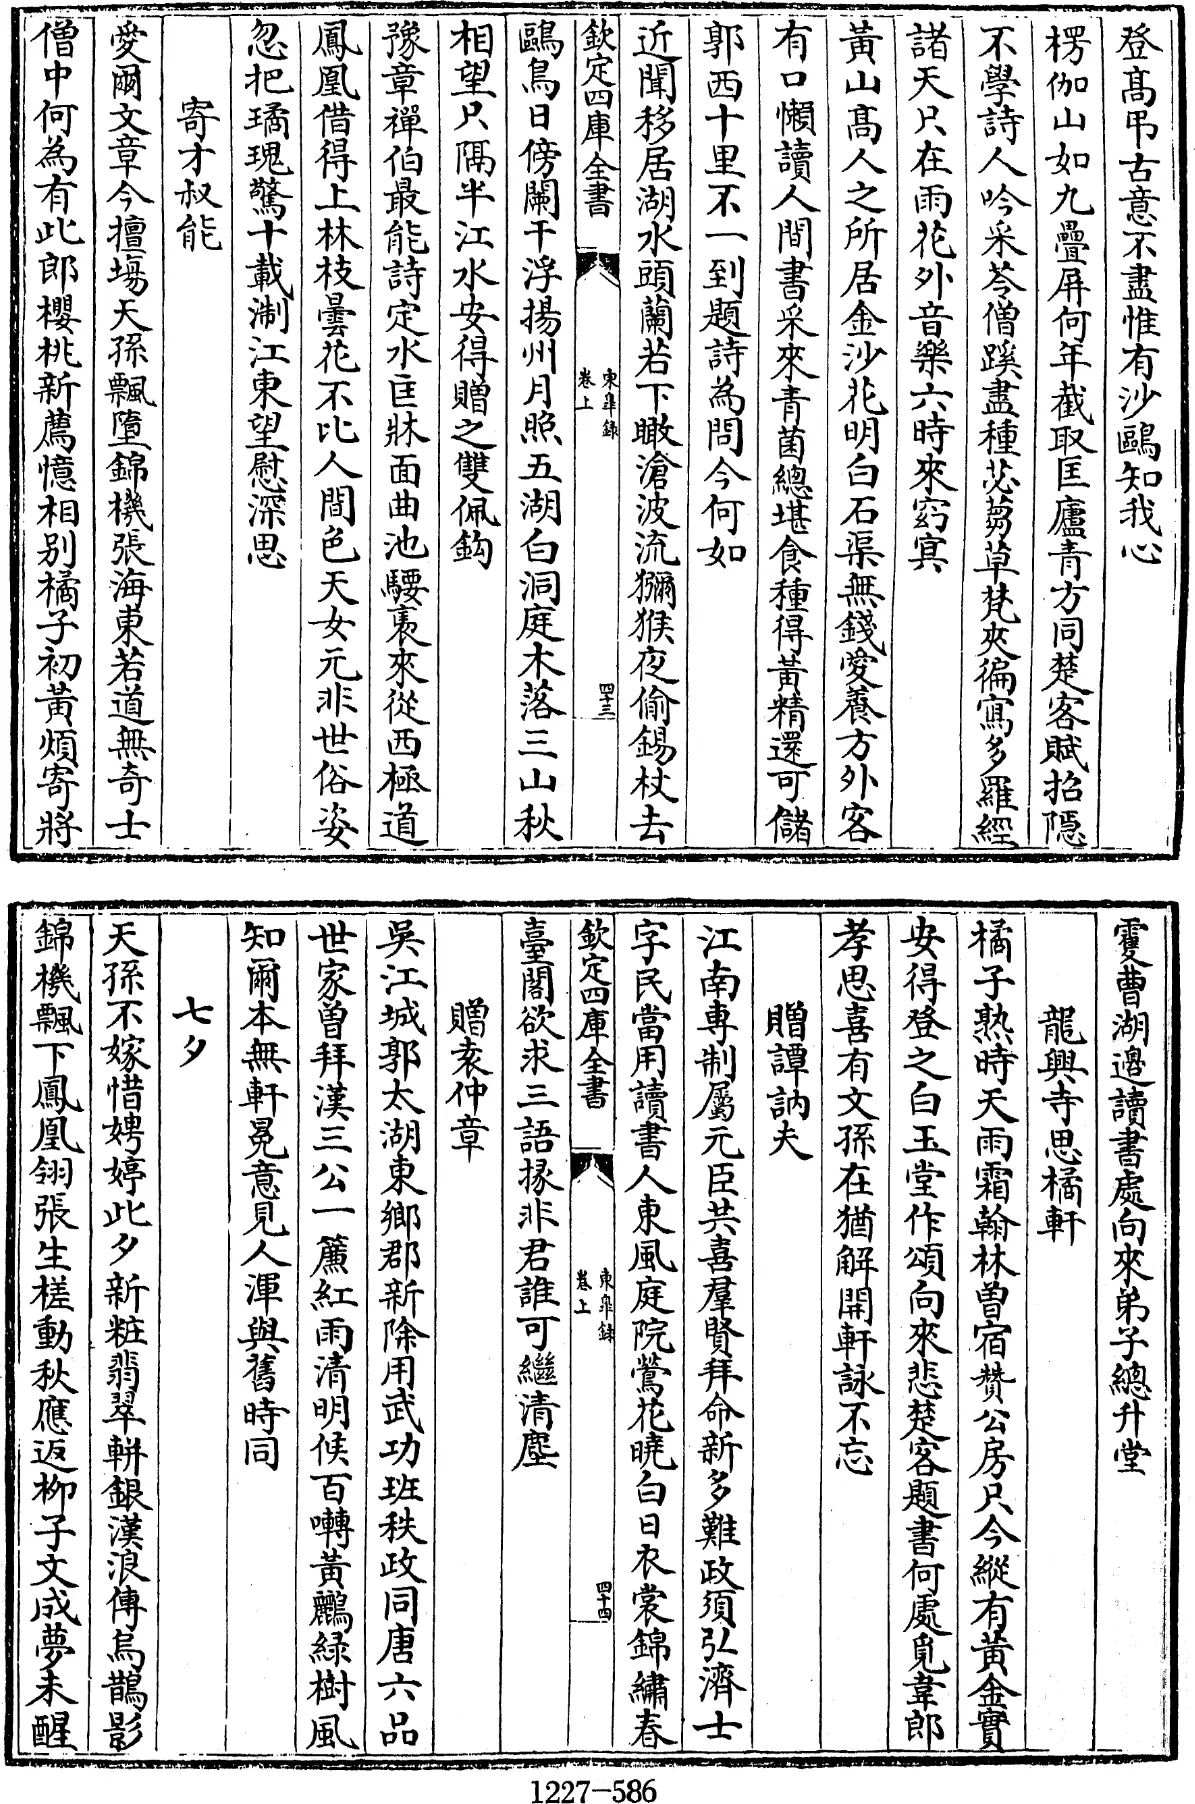 登髙弔古意不盡惟有沙鷗知我心
楞伽山如九疊屏何年截取匡廬青方同楚客賦招隱
不學詩人吟采苓僧蹊盡種苾蒭草梵夾徧寫多羅經
諸天只在雨花外音樂六時來窈㝠
黃山髙人之所居金沙花明白石渠無錢愛養方外客
有口懶讀人間書采來青菌總堪食種得黃精還可儲
郭西十里不一到題詩為問今何如
近聞移居湖水頭蘭若下瞰滄波流獼猴夜偷錫杖去
欽定四庫全書
東臯録
卷上
四十三
鷗鳥日傍闌干浮揚州月照五湖白洞庭木落三山秋
相望只隔半江水安得贈之雙佩鈎
豫章禪伯最能詩定水匡牀面曲池騕褭來從西極道
鳳凰借得上林枝曇花不比人間色天女元非世俗姿
忽把璚瑰驚十載淛江東望慰深思
寄才叔能
愛爾文章今擅塲天孫飄墮錦機張海東若道無奇士
僧中何為有此郎櫻桃新薦憶相别橘子初黃煩寄將
䨥曹湖邊讀書處向來弟子總升堂
龍興寺思橘軒
橘子熟時天雨霜翰林曽宿賛公房只今縱有黃金實
安得登之白玉堂作頌向來悲楚客題書何處覓韋郎
孝思喜有文孫在猶解開軒詠不忘
贈譚訥夫
江南専制屬元臣共喜羣賢拜命新多難政須弘濟士
字民當用讀書人東風庭院鶯花曉白日衣裳錦繡春
欽定四庫全書
東臯録
卷上
四十四
臺閣欲求三語掾非君誰可繼清塵
贈袁仲章
吳江城郭太湖東鄉郡新除用武功班秩政同唐六品
世家曽拜漢三公一簾紅雨清明候百囀黃鸝緑樹風
知爾本無軒冕意見人渾與舊時同
七夕
天孫不嫁惜娉婷此夕新粧翡翠輧銀漢浪傳烏鵲影
錦機飄下鳳凰翎張生槎動秋應返栁子文成夢未醒
1227-586